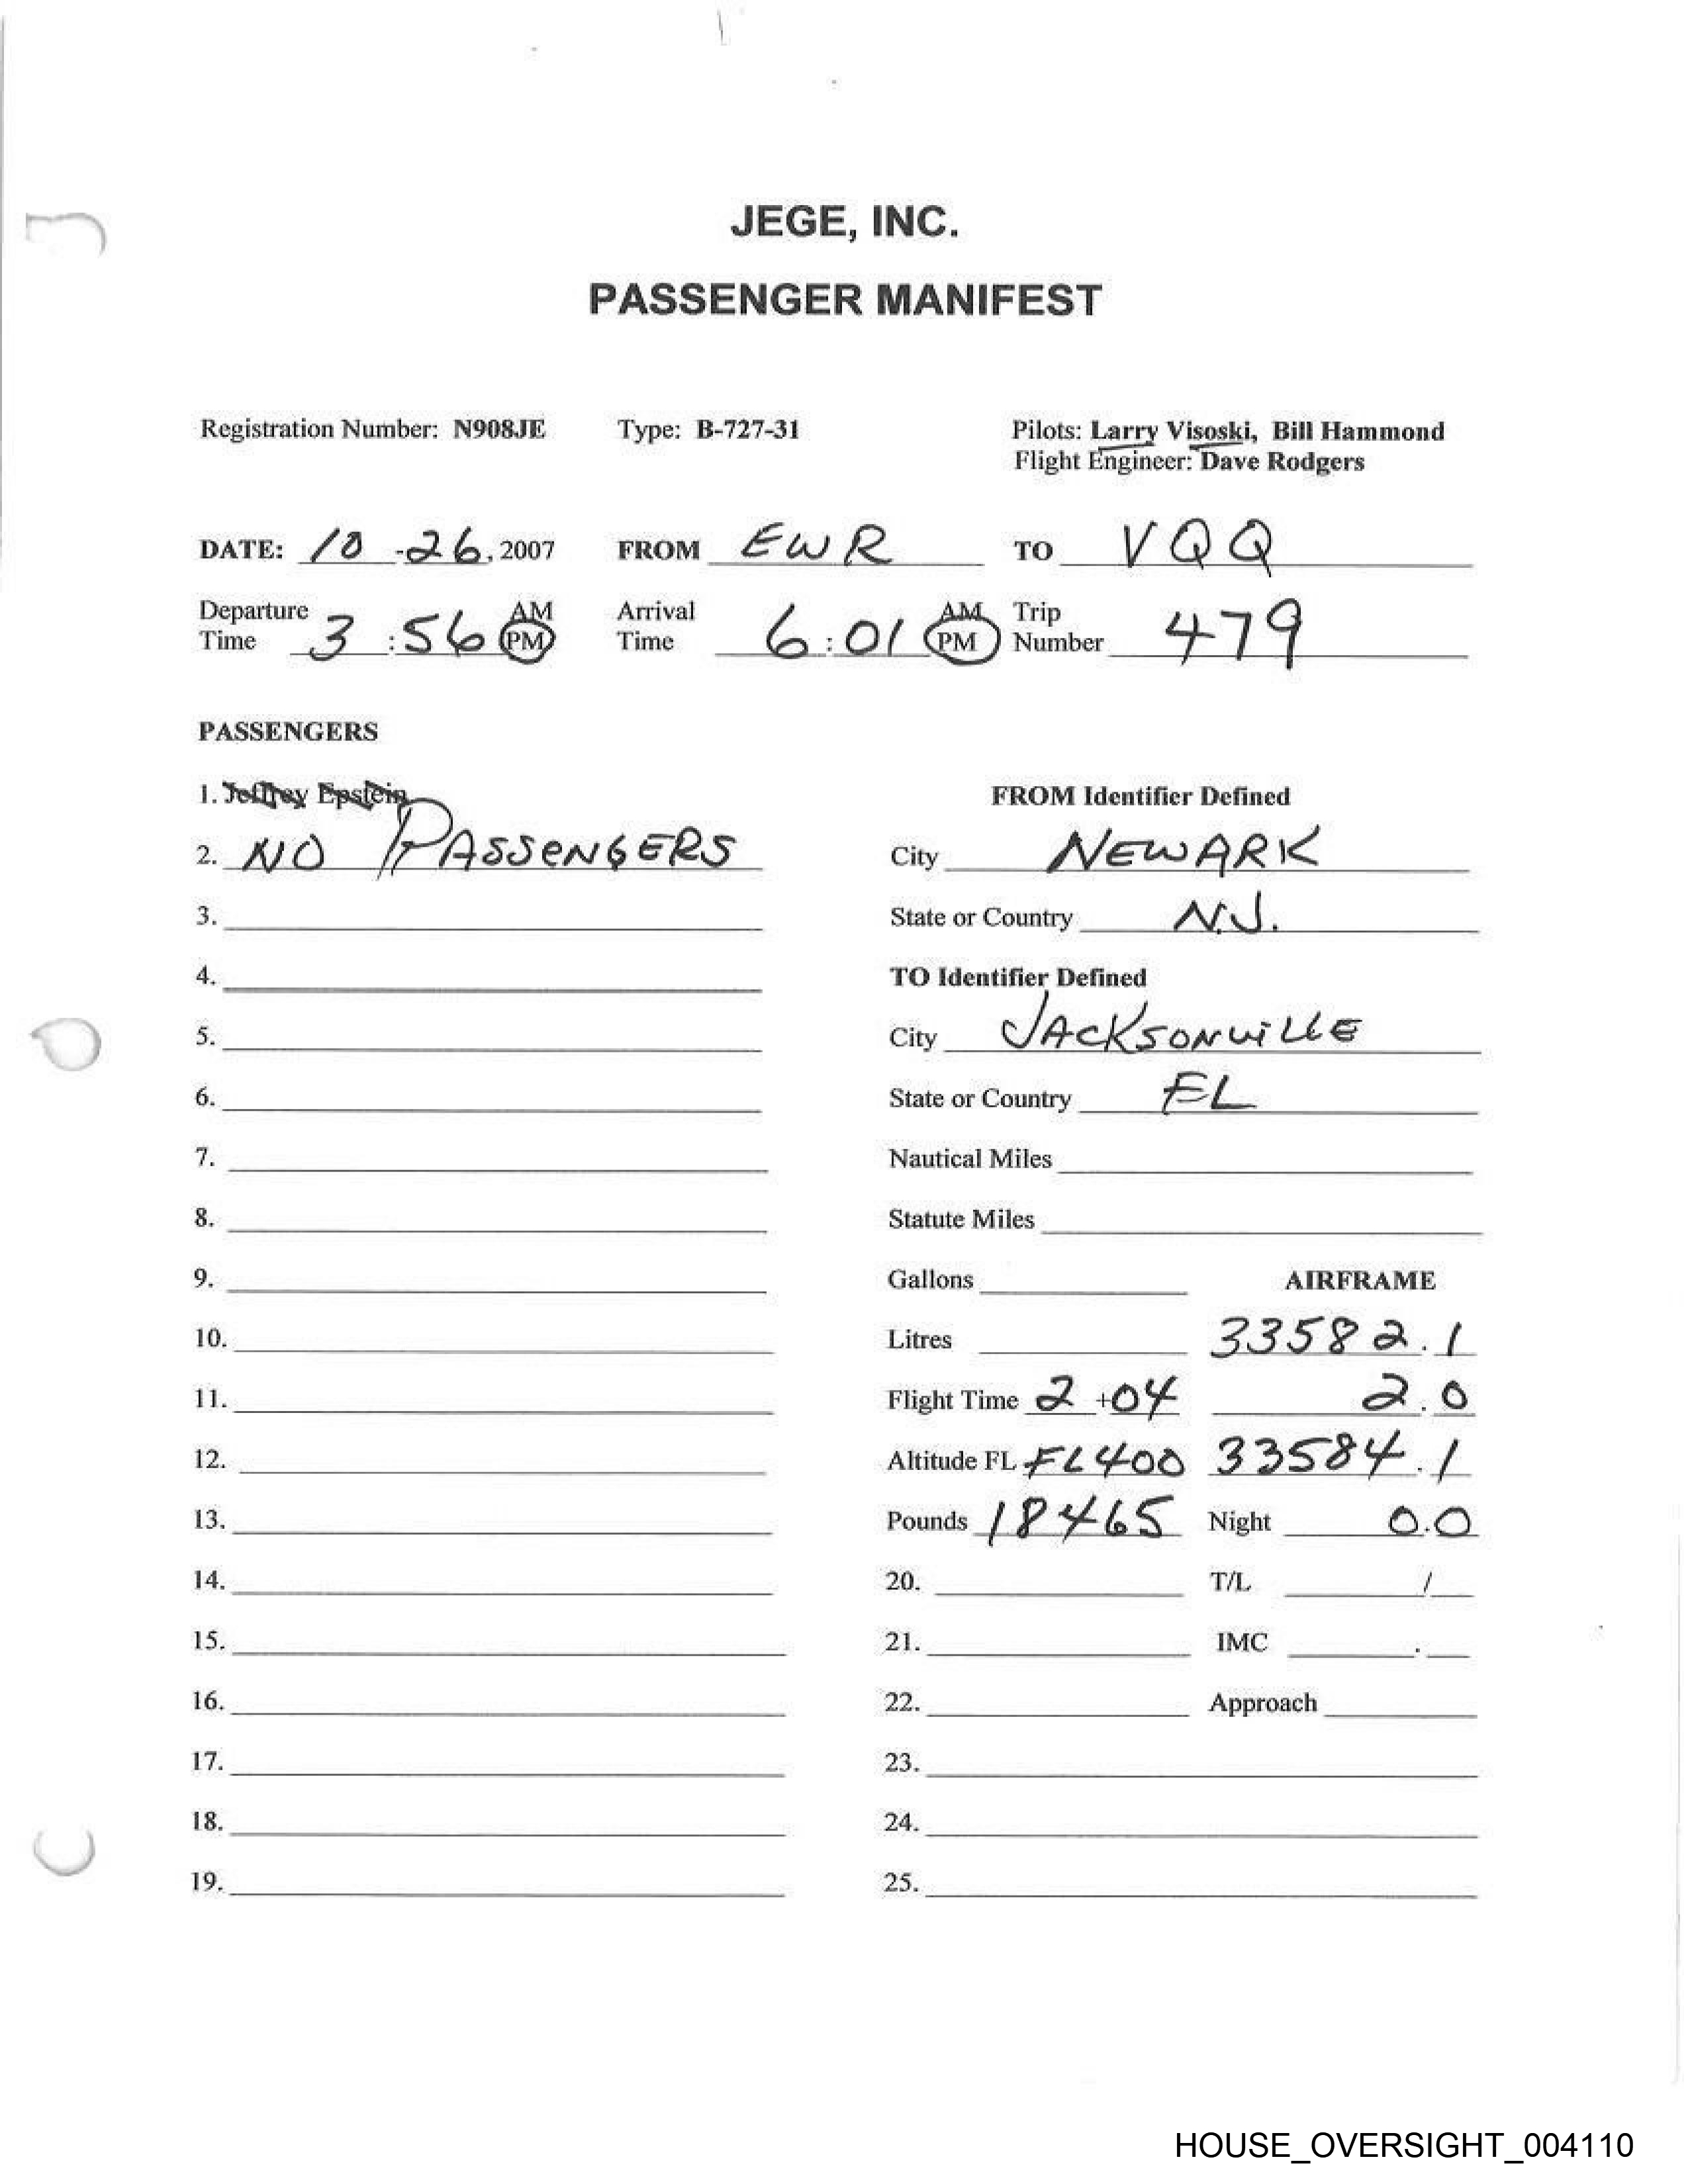 JEGE, INC.
PASSENGER MANIFEST
Registration Number: N908JE Type: B-727-31 Pilots: Larry Visoski, Bill Hammond
Flight Engineer: Dave Rodgers
DATE: 10 -26, 2007 FROM EWR TO VQQ
Departure Time 3:56 AM PM Arrival Time 6:01 AM PM Trip Number 479
PASSENGERS
1. Jeffrey Epstein FROM Identifier Defined
2. NO PASSENGERS City NEWARK
3. State or Country N.J.
4. TO Identifier Defined
5. City JACKSONVILLE
6. State or Country FL
7. Nautical Miles
8. Statute Miles
9. Gallons AIRFRAME
10. Litres 33582.1
11. Flight Time 2 +04 2.0
12. Altitude FL FL400 33584.1
13. Pounds 18465 Night 0.0
14. 20. T/L /
15. 21. IMC .
16. 22. Approach
17. 23.
18. 24.
19. 25.
HOUSE_OVERSIGHT_004110